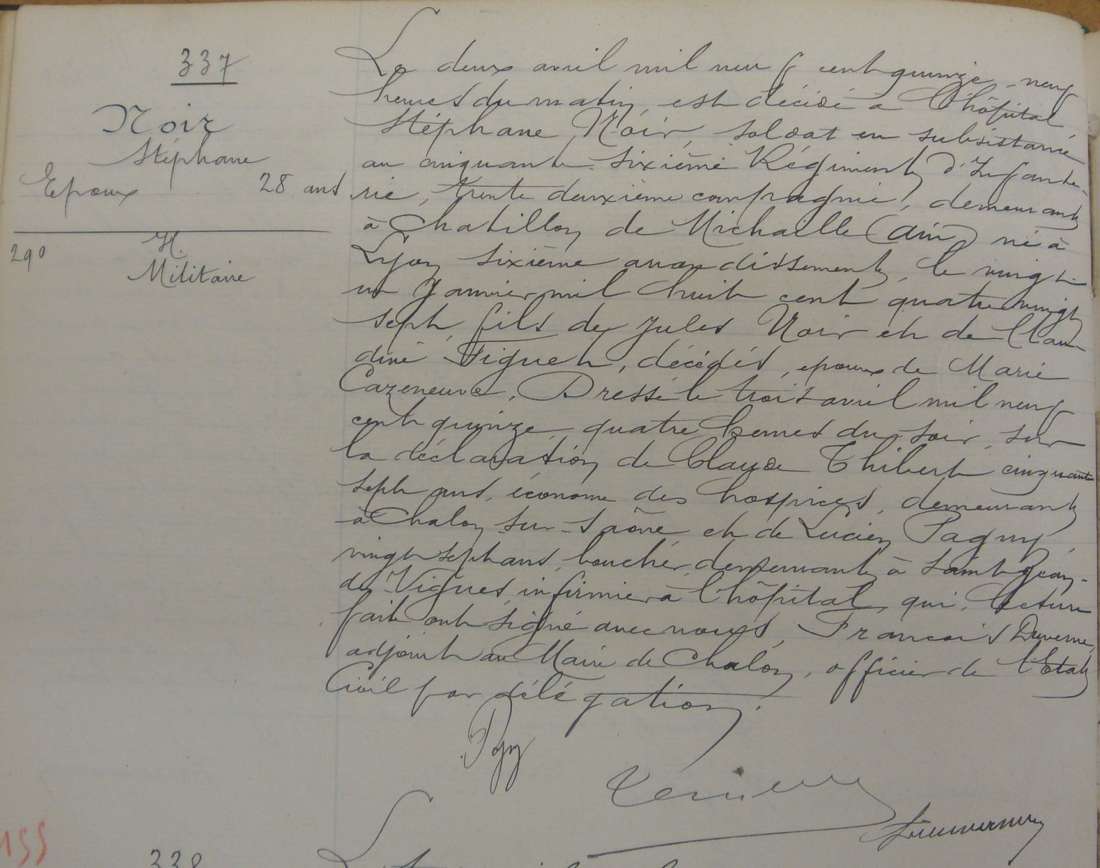 337
Noir
Stéphane
Epoux 28 ans
290
H.
Militaire
Le deux avril mil neuf cent quinze, neuf
heures du matin, est décédé à l'hôpital,
Stéphane Noir, soldat en subsistance
au cinquante sixième Régiment d'Infante-
rie, trente deuxième compagnie, demeurant
à Chatillon de Michaille (Ain) né à
Lyon sixième arrondissement, le vingt
un Janvier mil huit cent quatre vingt
sept, fils de Jules Noir et de Clau
dine Viguet, décédés, époux de Marie
Cazeneuve. Dressé le trois avril mil neuf
cent quinze, quatre heures du soir, sur
la déclaration de Claude Thibert cinquante
sept ans, économe des hospices, demeurant
à Chalon sur-Saône et de Lucien Paguy,
vingt sept ans, boucher, demeurant à Saint Jean-
de Vignes infirmier à l'hôpital, qui, lecture
faite ont signé avec nous, François Duverne,
adjoint au Maire de Chalon, officier de l'Etat
Civil par délégation.
155
338